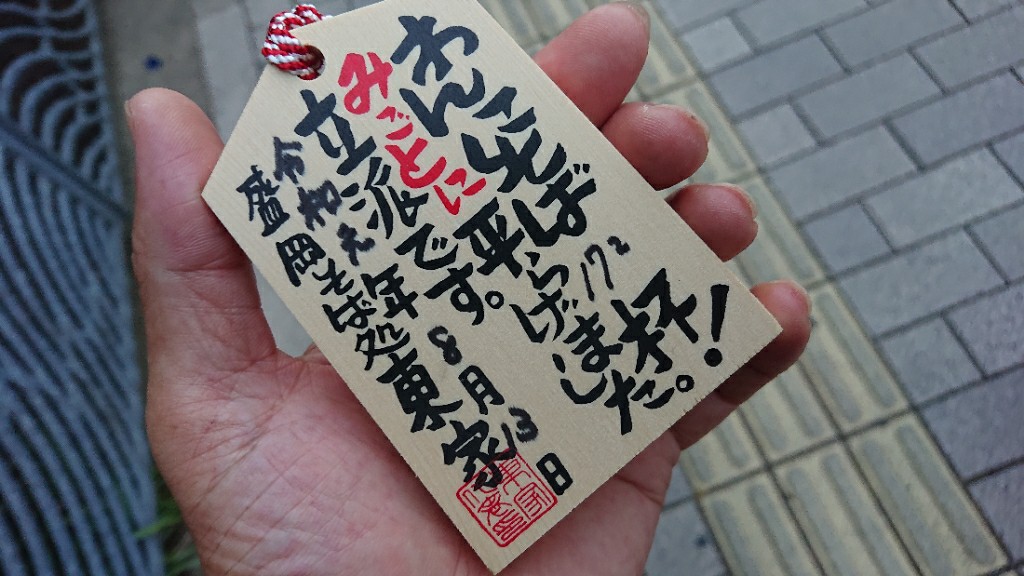 わんこそば172杯!
みごとに平らげました。
立派です。
令和元年8月13日
盛岡そば処東家